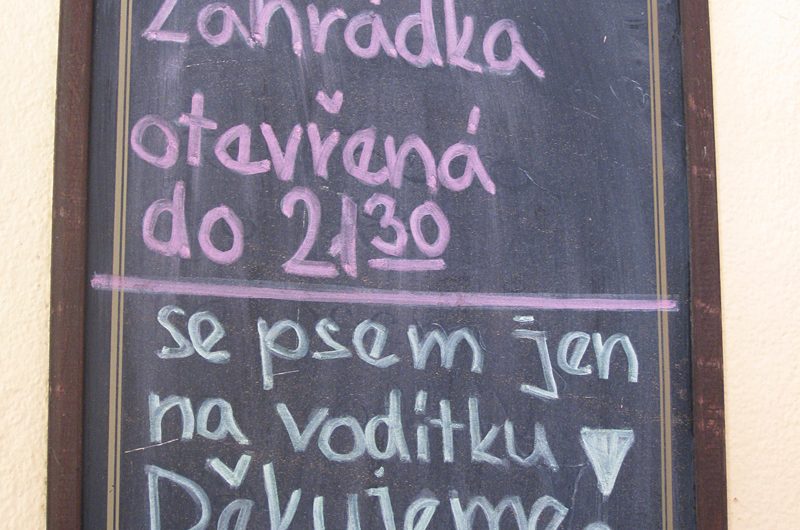 Zahrádka
otevřená
do 21 30
se psem jen
na vodítku!
Děkujeme